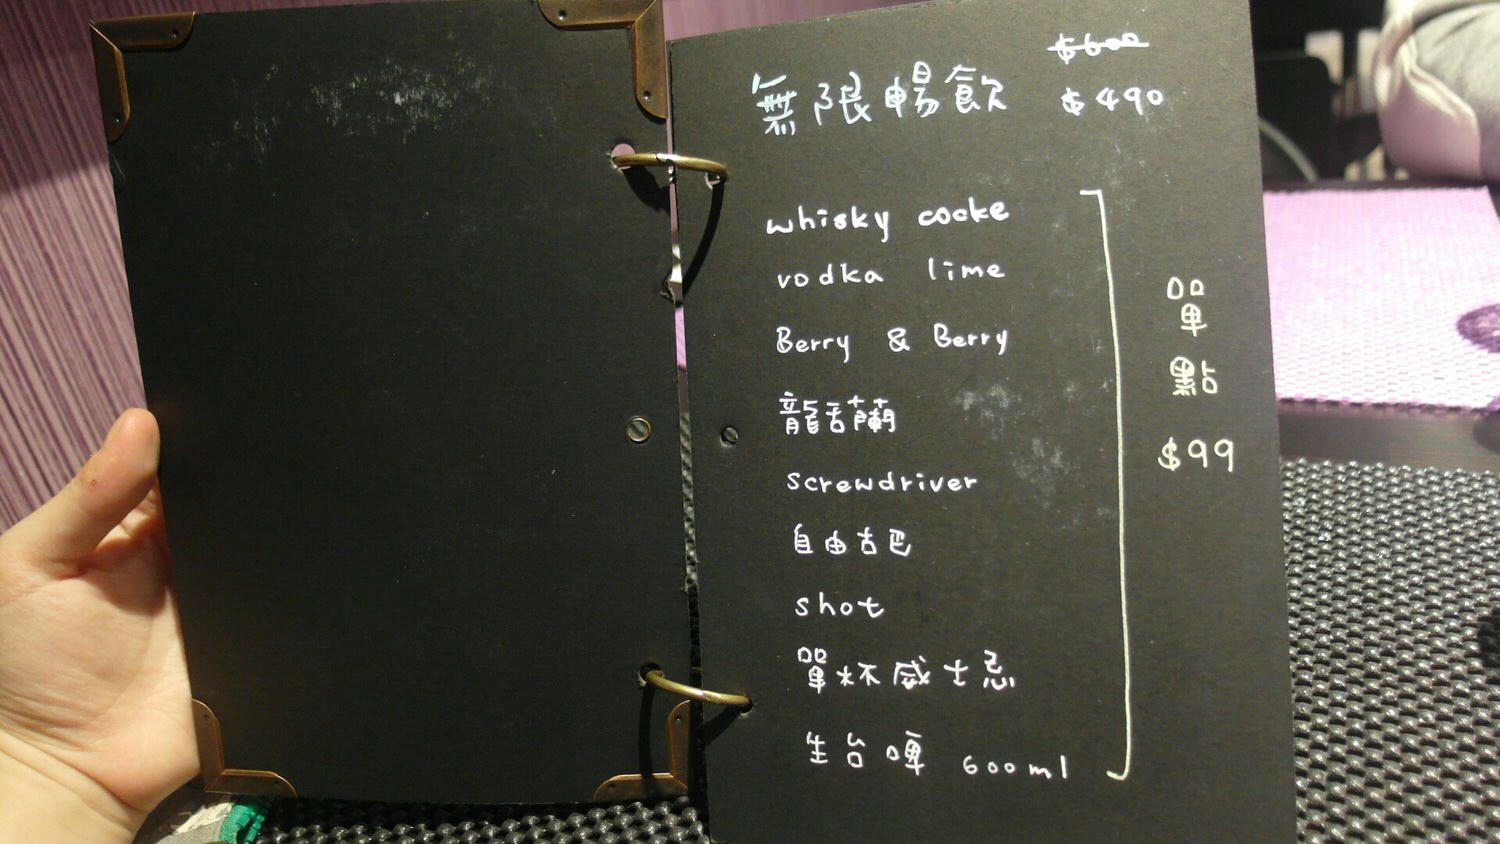 $600
無限暢飲 $490
whisky cocke
vodka lime
Berry & Berry
龍舌蘭
screwdriver
自由古巴
shot
單杯威士忌
生台啤 600ml
單點
$99